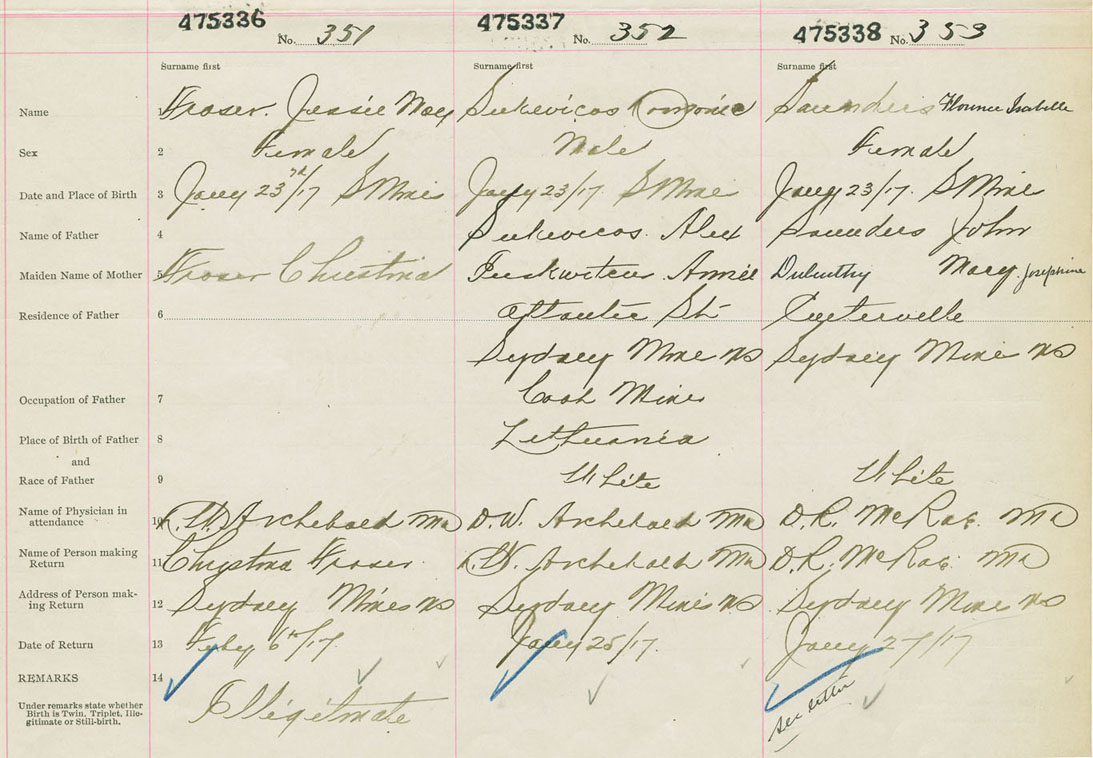 475336
No. 351
475337
No. 352
475338
No. 353
Surname first
Surname first
Surname first
Name 1 Fraser. Jessie May
Sukevicos
Saunders Florence Isabelle
Sex 2 Female
Male
Female
Date and Place of Birth 3 Jany 23rd/17 S Mines
Jany 23/17. S Mine
Jany 23/17. S Mine
Name of Father 4
Sukevicos. Alex
Saunders John
Maiden Name of Mother 5 Fraser Christina
Annie
Mary Josephine
Residence of Father 6
St
Sydney Mine NS
Sydney Mine NS
Occupation of Father 7
Coal Mines
Place of Birth of Father 8
Lethuania
and
Race of Father 9
White
White
Name of Physician in
attendance 10 Archebald MD
D.W. Archebald MD
D.R. McRae. MD
Name of Person making
Return 11 Chrystina Fraser.
W. Archebald MD
D.R. McRae. MD
Address of Person mak-
ing Return 12 Sydney Mines NS
Sydney Mines NS
Sydney Mines NS
Date of Return 13 Feby 6th/17.
Jany 25/17.
Jany 27/17
REMARKS 14
Under remarks state whether
Birth is Twin, Triplet, Ille-
gitimate or Still-birth.
Illegitmate
see letter